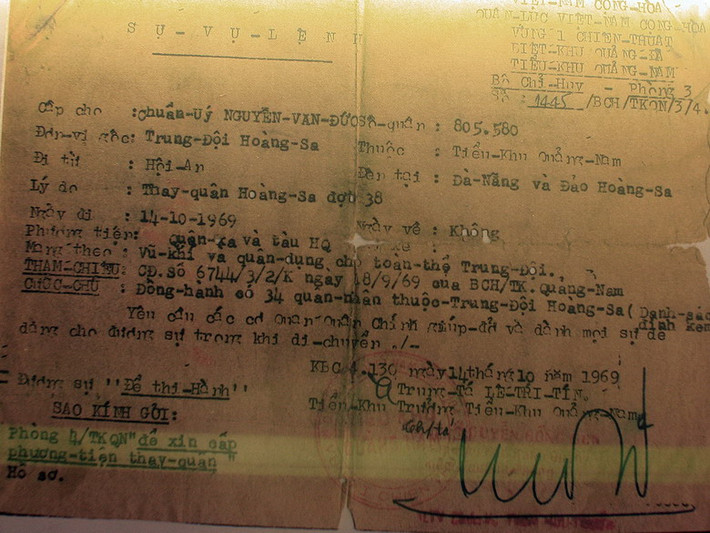 SỰ-VỤ-LỆNH
VIỆT-NAM CỘNG-HÒA
QUÂN-LỰC VIỆT-NAM CỘNG-HÒA
VÙNG 1 CHIẾN-THUẬT
BIỆT-KHU QUẢNG-ĐÀ
TIỂU-KHU QUẢNG-NAM
Bộ Chỉ-Huy - Phòng 3
Số : 1445 /BCH/TKQN/3/4.
Cấp cho : Chuẩn-Uý NGUYỄN-VĂN-ĐỨC Số-quân : 805.580
Đơn-vị gốc: Trung-Đội Hoàng-Sa Thuộc : Tiểu-Khu Quảng-Nam
Đi từ : Hội-An Đến tại : Đà-Nẵng và Đảo Hoàng-Sa
Lý do : Thay-quân Hoàng-Sa đợt 38
Ngày đi : 14-10-1969 Ngày về : Không
Phương tiện: Quân-xa và tàu HQ
Mang theo : Vũ-khí và quân-dụng cho toàn-thể Trung-Đội.
THAM-CHIẾU: CĐ.Số 6744/3/2/K ngày 18/9/69 của BCH/TK.Quảng-Nam
CƯỚC-CHÚ : Đồng-hành có 34 quân-nhân thuộc-Trung-Đội Hoàng-Sa( Danh-sách
đính kèm
Yêu cầu các cơ Quan Quân Chính giúp-đỡ và dành mọi sự dễ
dàng cho đương sự trong khi di-chuyển ./-
KBC 4.130 ngày 14 tháng 10 năm 1969
= Đương sự "Để thi-Hành" Trung-Tá LÊ-TRÍ-TÍN.
Tiểu-Khu Trưởng Tiểu-Khu Quảng-Nam
SAO KÍNH GỞI:
Phòng 4/TKQN"để xin cấp
phương-tiện thay-quân "
Hồ sơ.